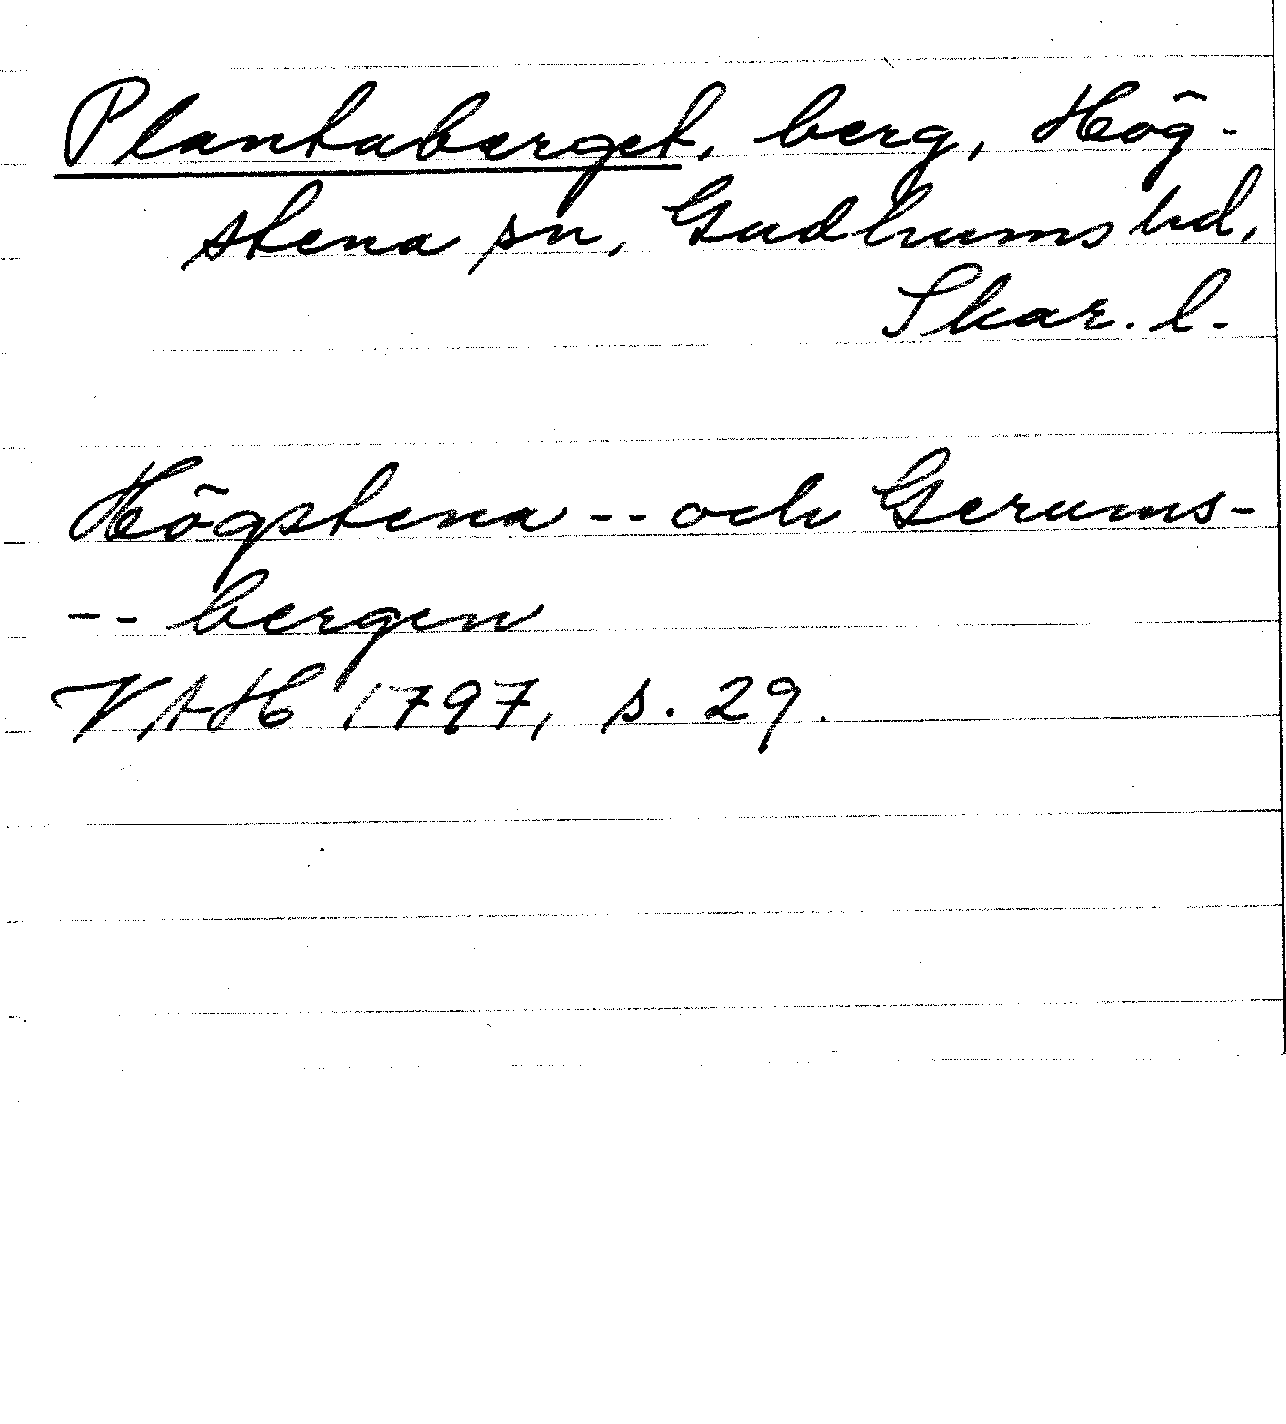 Plantaberget, berg, Hög-
stena sn, Gudhems hd,
Skar. l.
Högstena -- och Gerums-
-- bergen
VAH 1797, s. 29.